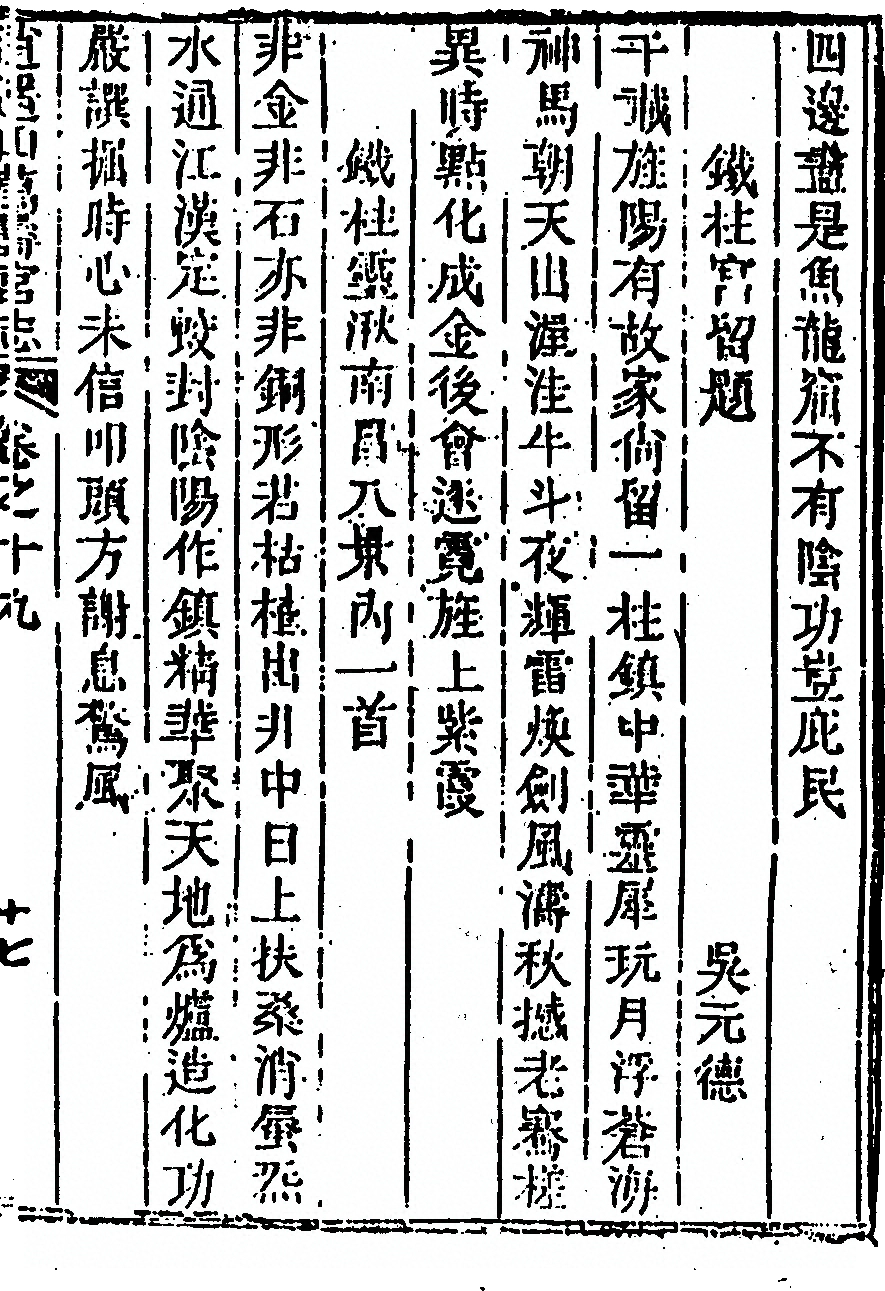 四邊盡是魚龍窟不有陰功豈庇民
鐵柱宮留題 吳元德
千載旌陽有故家尚留一柱鎮中華靈犀玩月浮蒼海
神馬朝天出渥洼牛斗夜輝雷煥劍風濤秋撼老騫槎
異時點化成金後會逐霓旌上紫霞
鐵柱靈湫南昌八景內一首
非金非石亦非銅形若枯槎出井中日上扶桑消蜃氣
水通江漢定蛟封陰陽作鎮精華聚天地為爐造化功
嚴譔掘時心未信叩頭方謝息驚風
萬壽宮志 卷之十九 十七